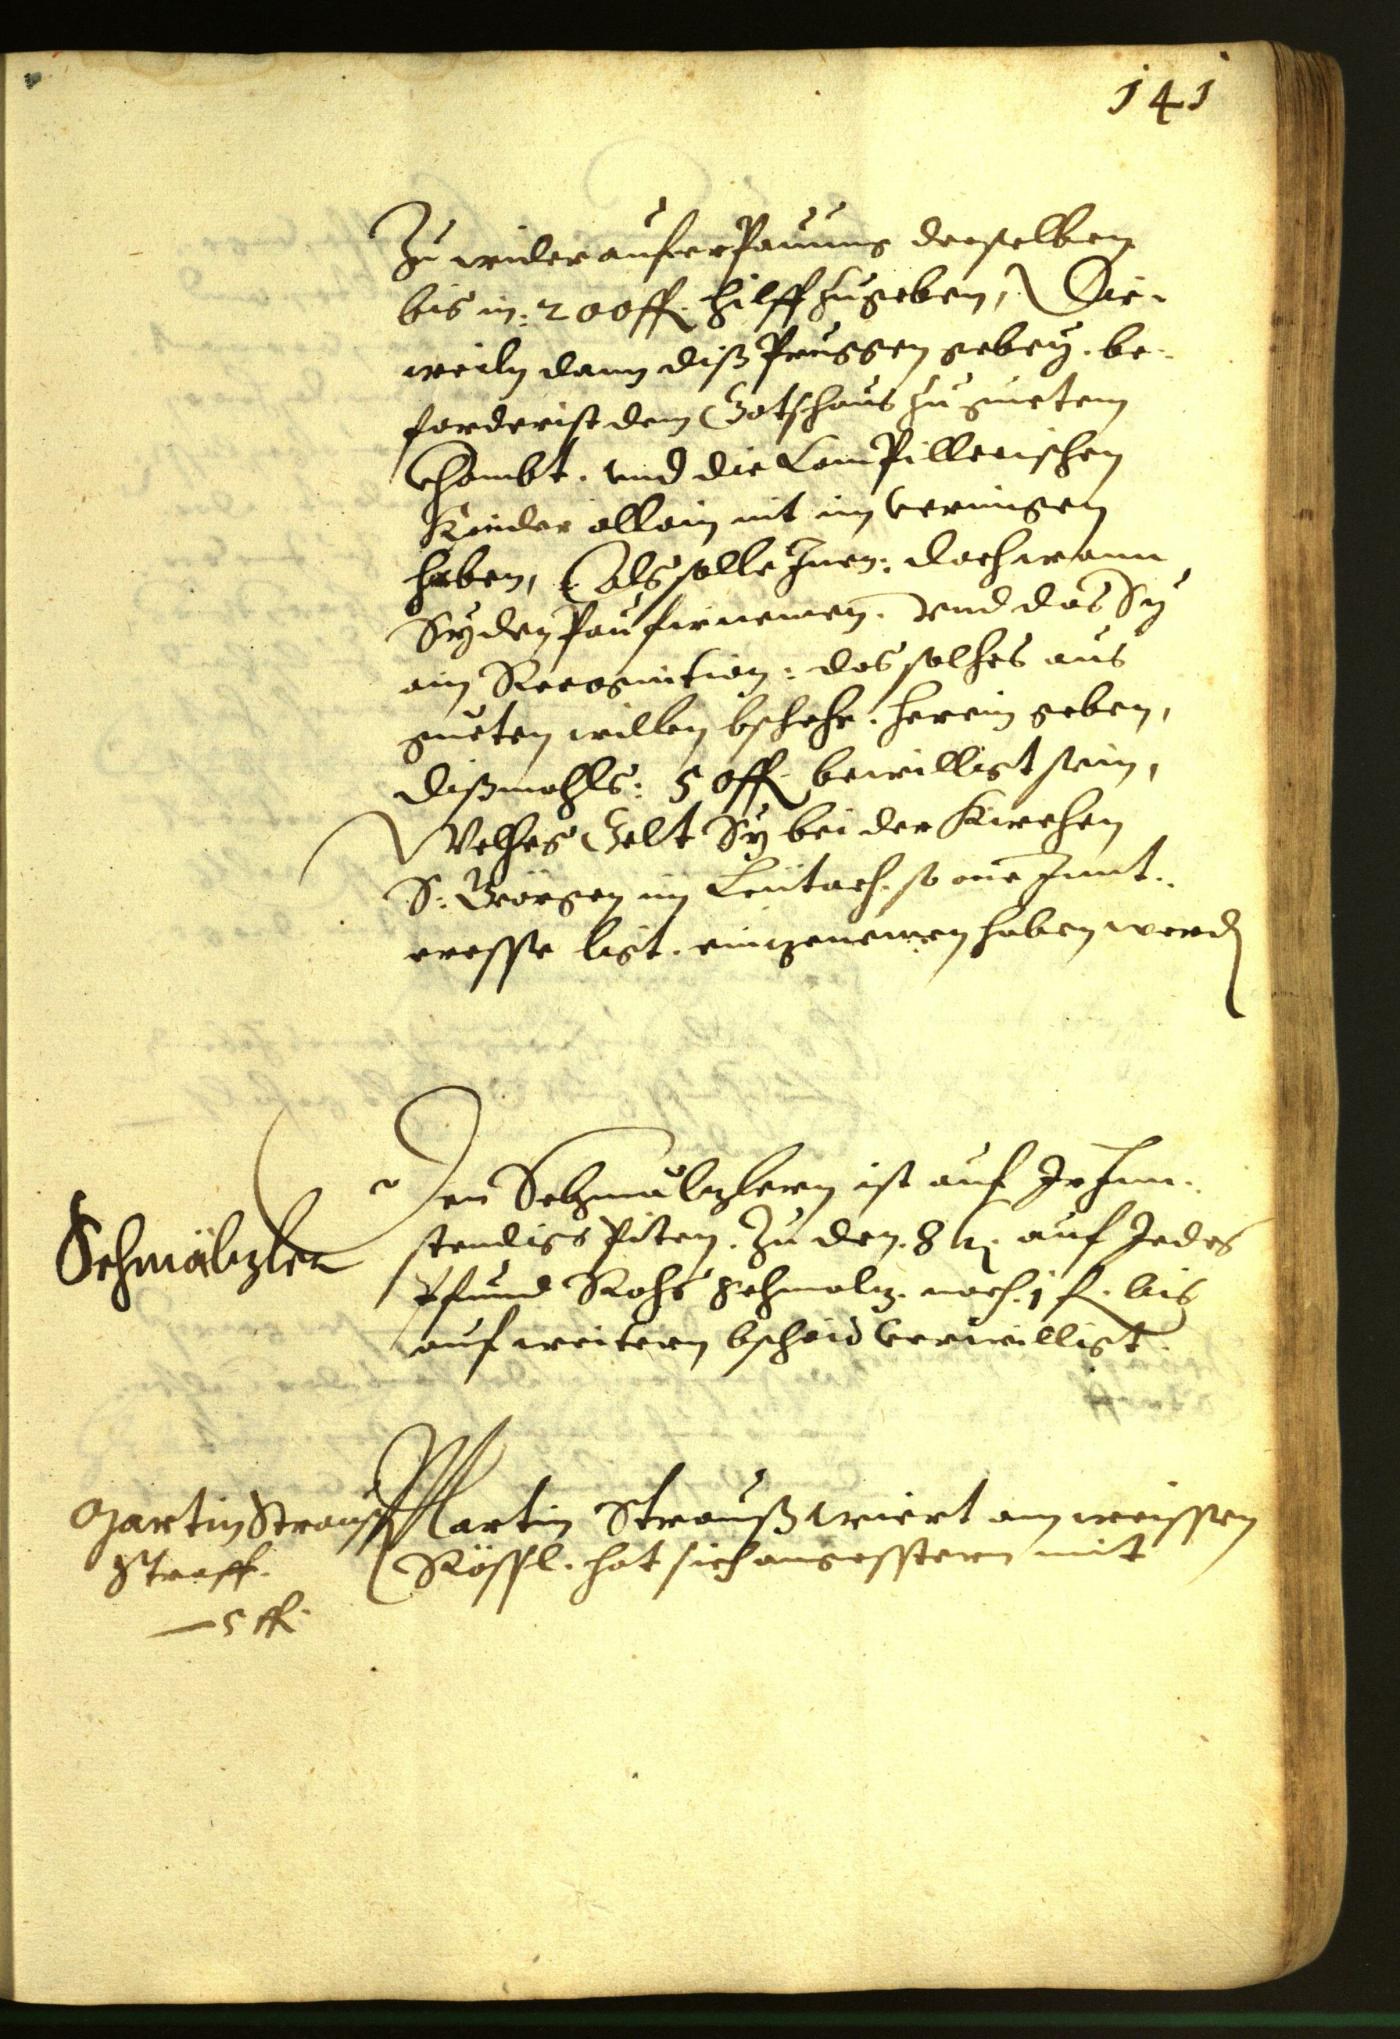 141
Zu wider auferPauung derselben
bis in: 200 ff. hilff zugeben, Die-
weiln dann diß Pruggen gebey. be-
forderist dem Gotshaus zu guetem
khombt. vnd die LamPillerischen
Kinder allain nit im vermigen
haben, Als solle Inen: doch wann
Sy den Pau firnemen. vnd das Sy
ain Recognition: das solhes aus
gueten willen bschehe. herein geben,
dißmahls: 50 ff. bewilligt sein,
Welhes Gelt Sy bei der Kirchen
S: Geörgen im Leütach. so one Innt-
eresse ligt. eingenomen haben werdn
Schmälzler
Den Schmälzlern ist auf Ir Inn-
stendigs Piten. Zu den. 8 kr. auf Jedes
Pfund Rohs Schmalz. noch. 1 f. bis
auf weitern bschaid verwilligt.
Martin Strauß
Straff.
— 5 ff.
Martin Strauß Wiert am weissen
Rössl. hat sich angesstern mit